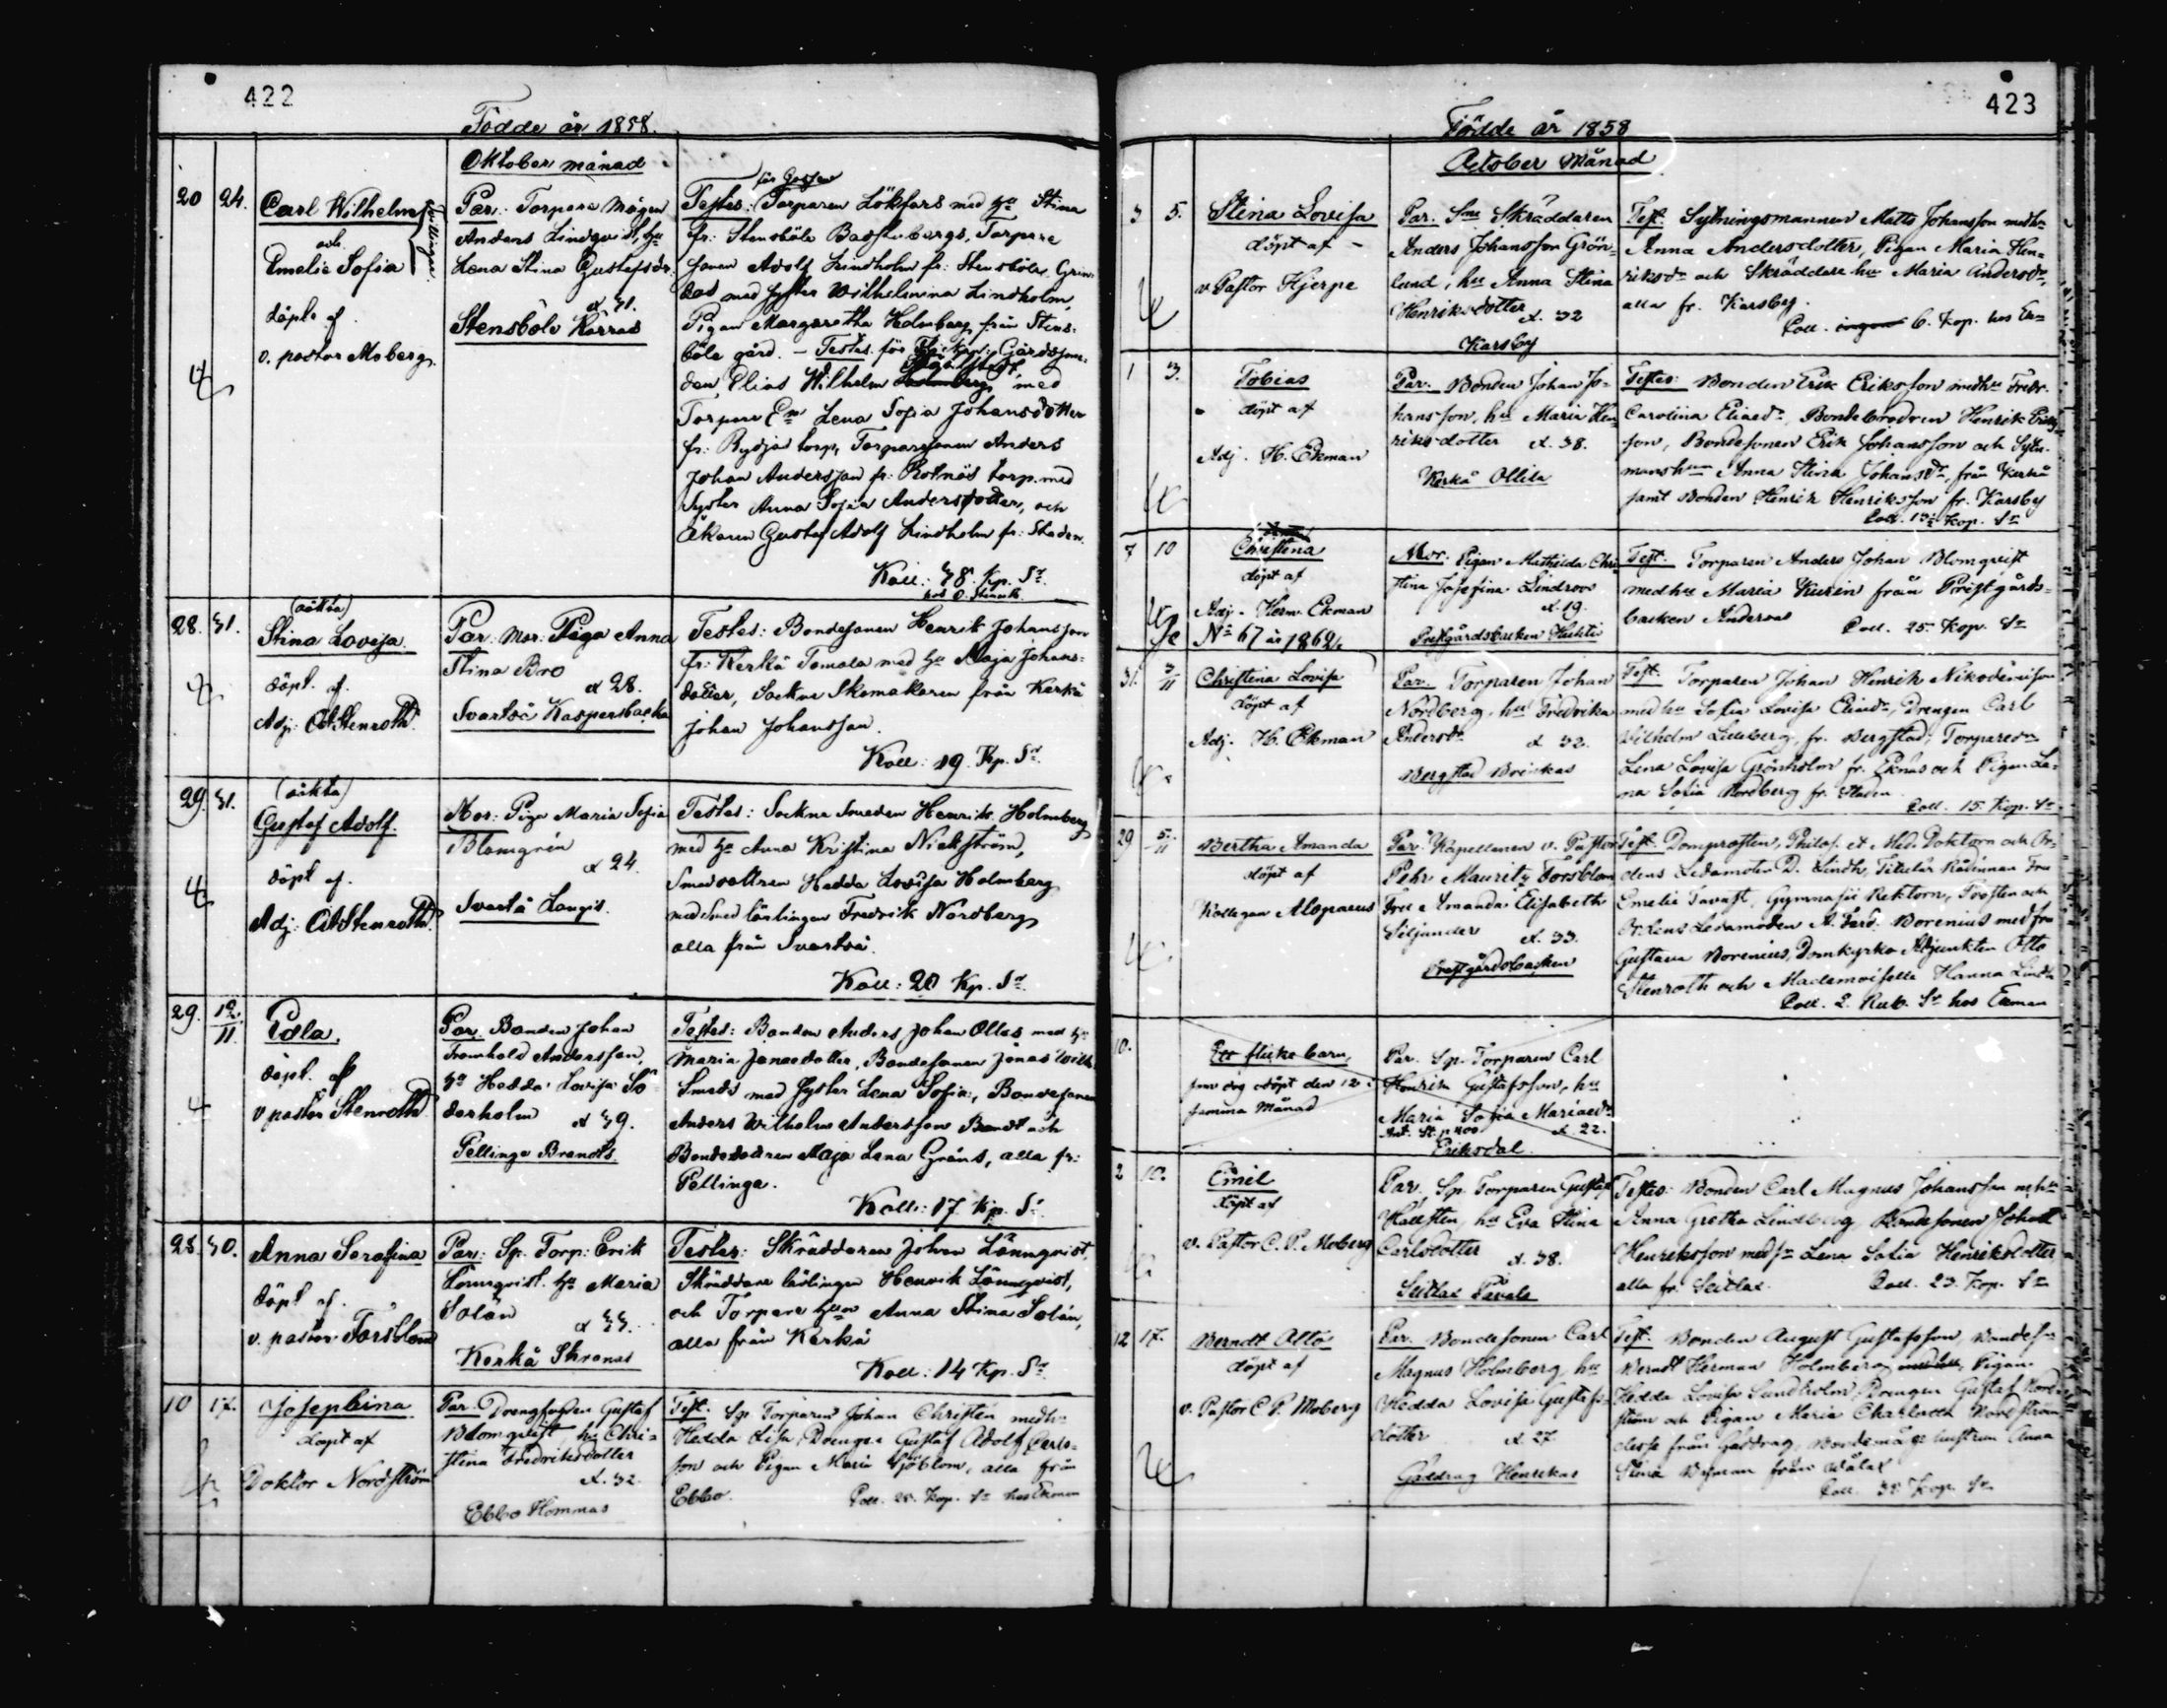 422
Födde år 1858.
Oktober månad
20 24. Carl Wilhelm
och
Emelie Sofia
tvillingar
döpte af
v. pastor Moberg.
Par: Torpare Mågen
Anders Lindqvist, Hu
Lena Stina Gustafsdr.
æ 31.
Stensböle Kärras
för Gossen
Testes: Torparen Lökfors med Hu Stina
fr: Stensböle Bastubergs, Torpare
sonen Adolf Lindholm fr: Stensböle
med syster Wilhelmina Lindholm,
Pigan Margaretha Holmberg från Stens-
böle gård. – Testes för Flickan: Gårdssme-
den Elias Wilhelm med
Torpare En Lena Sofia Johansdotter
fr: torp, Torparesonen Anders
Johan Andersson fr: Rotnäs torp med
Syster Anna Sofia Andersdotter, och
Åkaren Gustaf Adolf Lindholm fr: Staden.
Koll: 38. Kp. Sr.
28. 31. (oäkta)
Stina Lovisa.
döpt. af.
Adj: O. Stenroth.
Par: Mor: Piga Anna
Stina Bro
æ 28.
Svartså Kaspersbacka
Testes: Bondesonen Henrik Johansson
fr: Kerkå Tomola med Hu Maja Johans-
dotter, Sockne Skomakaren från Kerkå
Johan Johansson.
Koll: 19. Kp. Sr.
29. 31. (oäkta)
Gustaf Adolf.
döpt af.
Adj: O. Stenroth.
Mor: Piga Maria Sofia
Blomgrén
æ 24.
Svartå
Testes: Sockne Smeden Henrik Holmberg
med Hu Anna Kristina Nickström,
Smedsdottren Hedda Lovisa Holmberg
med Smed lärlingen Fredrik Nordberg
alla från Svartså.
Koll: 20 Kp. Sr.
29. 12/11. Edla.
döpt. af
v pastor Stenroth
Par. Bonden Johan
Fromhold Andersson,
Hu Hedda Lovisa Sö-
derholm æ 39.
Pellinge Brandts
Testes: Bonden Anders Johan Ollas med Hu
Maria Jonaedotter, Bondesonen Jonas Wilh.
Smeds med Syster Lena Sofia, Bondesonen
Anders Wilhelm Andersson Brandt och
Bondedottren Maja Lena Gräns, alla fr:
Pellinge.
Koll: 17 Kp. Sr.
28. 30. Anna Serafina
döpt af.
v. pastor Forsblom
Par: Sp. Torp: Erik
Lönnqvist. Hu Maria
Solén
æ 33.
Kerkå Skranas
Testes: Skräddaren Johan Lönnqvist,
Skräddare lärlingen Henrik Lönnqvist,
och Torpare Hun Anna Stina Solén,
alla från Kerkå
Koll: 14 Kp. Sr.
10 17. Josephina
döpt af
Doktor Nordström
Par. Drengsågden Gustaf
Blomqvist, hu Chri-
stina Fredriksdotter
æ. 32.
Ebbo Hommas
Test. Sp. Torparen Johan Christén medhu
Hedda Lisa, Drengen Gustaf Adolf Carls-
son och Pigan Maria Sjöblom, alla från
Ebbo. Coll. 25. Kop. Sr hos Ekman
423
Födde år 1858
October Månad
3 5. Stina Lovisa
döpt af –
v. Pastor Hjerpe
Par. Sme Skräddaren
Anders Johansson Grön-
lund, hu Anna Stina
Henriksdotter æ. 32
Karsby
Test. Sytningsmannen Matts Johansson medhu
Anna Andersdotter, Pigan Maria Hen-
riksdr och Skräddare hu Maria Andersdr,
alla fr. Karsby.
Coll. 6. Kop. hos
1 3. Tobias
döpt af
Adj. H. Ekman
Par. Bonden Johan Jo-
hansson, hu Maria Hen-
riksdotter æ. 38.
Kerkå Ollila
Testes: Bonden Erik Eriksson medhu Fredr.
Carolina Eliaedr, Bondebrodren Henrik Eriks-
son, Bondesonen Erik Johansson och Sytn.
manshun Anna Stina Johansdr, från Kerkå
samt Bonden Henrik Henriksson fr. Karsby
Coll. 13½ Kop. Sr
7 10 Christina
döpt af
Adj. Herm. Ekman
No 67 år 1862.
Mor. Pigan Mathilda Chri-
stina Josefina Lindroos
æ. 19.
Prestgårdsbacken
Test. Torparen Anders Johan Blomqvist
medhu Maria Kurin från Prestgårds-
backen Coll. 25. Kop. Sr
31. 3/11 Christina Lovisa
döpt af
Adj. H. Ekman
Par. Torparen Johan
Nordberg, hu Fredrika
Andersdr æ 32.
Bergstad Brinkas
Test. Torparen Johan Henrik Nikodemisson
medhu Sofia Lovisa Eliaedr, Drengen Carl
Wilhelm Lilleberg, fr. Bergstad, Torparedr
Lena Lovisa Grönholm fr. Eknäs och Pigan Le-
na Sofia Nordberg fr. Staden
Coll. 15. Kop. Sr
29 5/11 Bertha Amanda
döpt af
Kollegan Alopaeus
Par. Kapellanen v. Pastor
Pehr Mauritz Forsblom
Fru Amanda Elisabeth
Siljander æ. 33.
Prestgårdsbacken
Test. Domprosten, Philos. et Med. Doktorn och Or-
dens Ledamoten D. Lindh, Titulär Rådinnan Fru
Emelie Tavast, Gymnasii Rektorn, Prosten och
Ordens Ledamoten A. Ferd. Borenius med fru
Gustava Borenius, Domkyrko Adjunkten Otto
Stenroth och Mademoiselle Hanna Lindh
Coll. 2. Rub. Sr hos Ekman
10. Ett flicke barn,
som dog odöpt den 12
samma Månad
Par. Sp. Torparen Carl
Henrik Gustafsson, hu
Maria Sofia Mariaedr
æ. 22.
Eriksdal
2 10. Emil
döpt af
v. Pastor C. P. Moberg
Par. Sp. Torparen Gustaf
Hällsten, hu Eva Stina
Carlsdotter æ. 38.
Seitlax Pavals
Testes: Bonden Carl Magnus Johansson m. hu
Anna Gretha Lindberg, Bondesonen Johan
Henriksson med sr Lena Sofia Henriksdotter
alla fr. Seitlax. Coll. 23. Kop. Sr
12 17. Berndt Otto
döpt af
v. Pastor C P. Moberg
Par. Bondesonen Carl
Magnus Holmberg, hu
Hedda Lovisa Gustafs-
dotter æ. 27
Gäddrag Henrikas
Test. Bonden August Gustafsson, Bondesn
Berndt Herman Holmberg Pigan
Hedda Lovisa Sundholm, Drengen Gustaf Nord-
ström och Pigan Maria Charlotta Nordström
desse från Gäddrag, Bondemåge hustrun Anna
Stina från Wålax
Coll. Kop. Sr